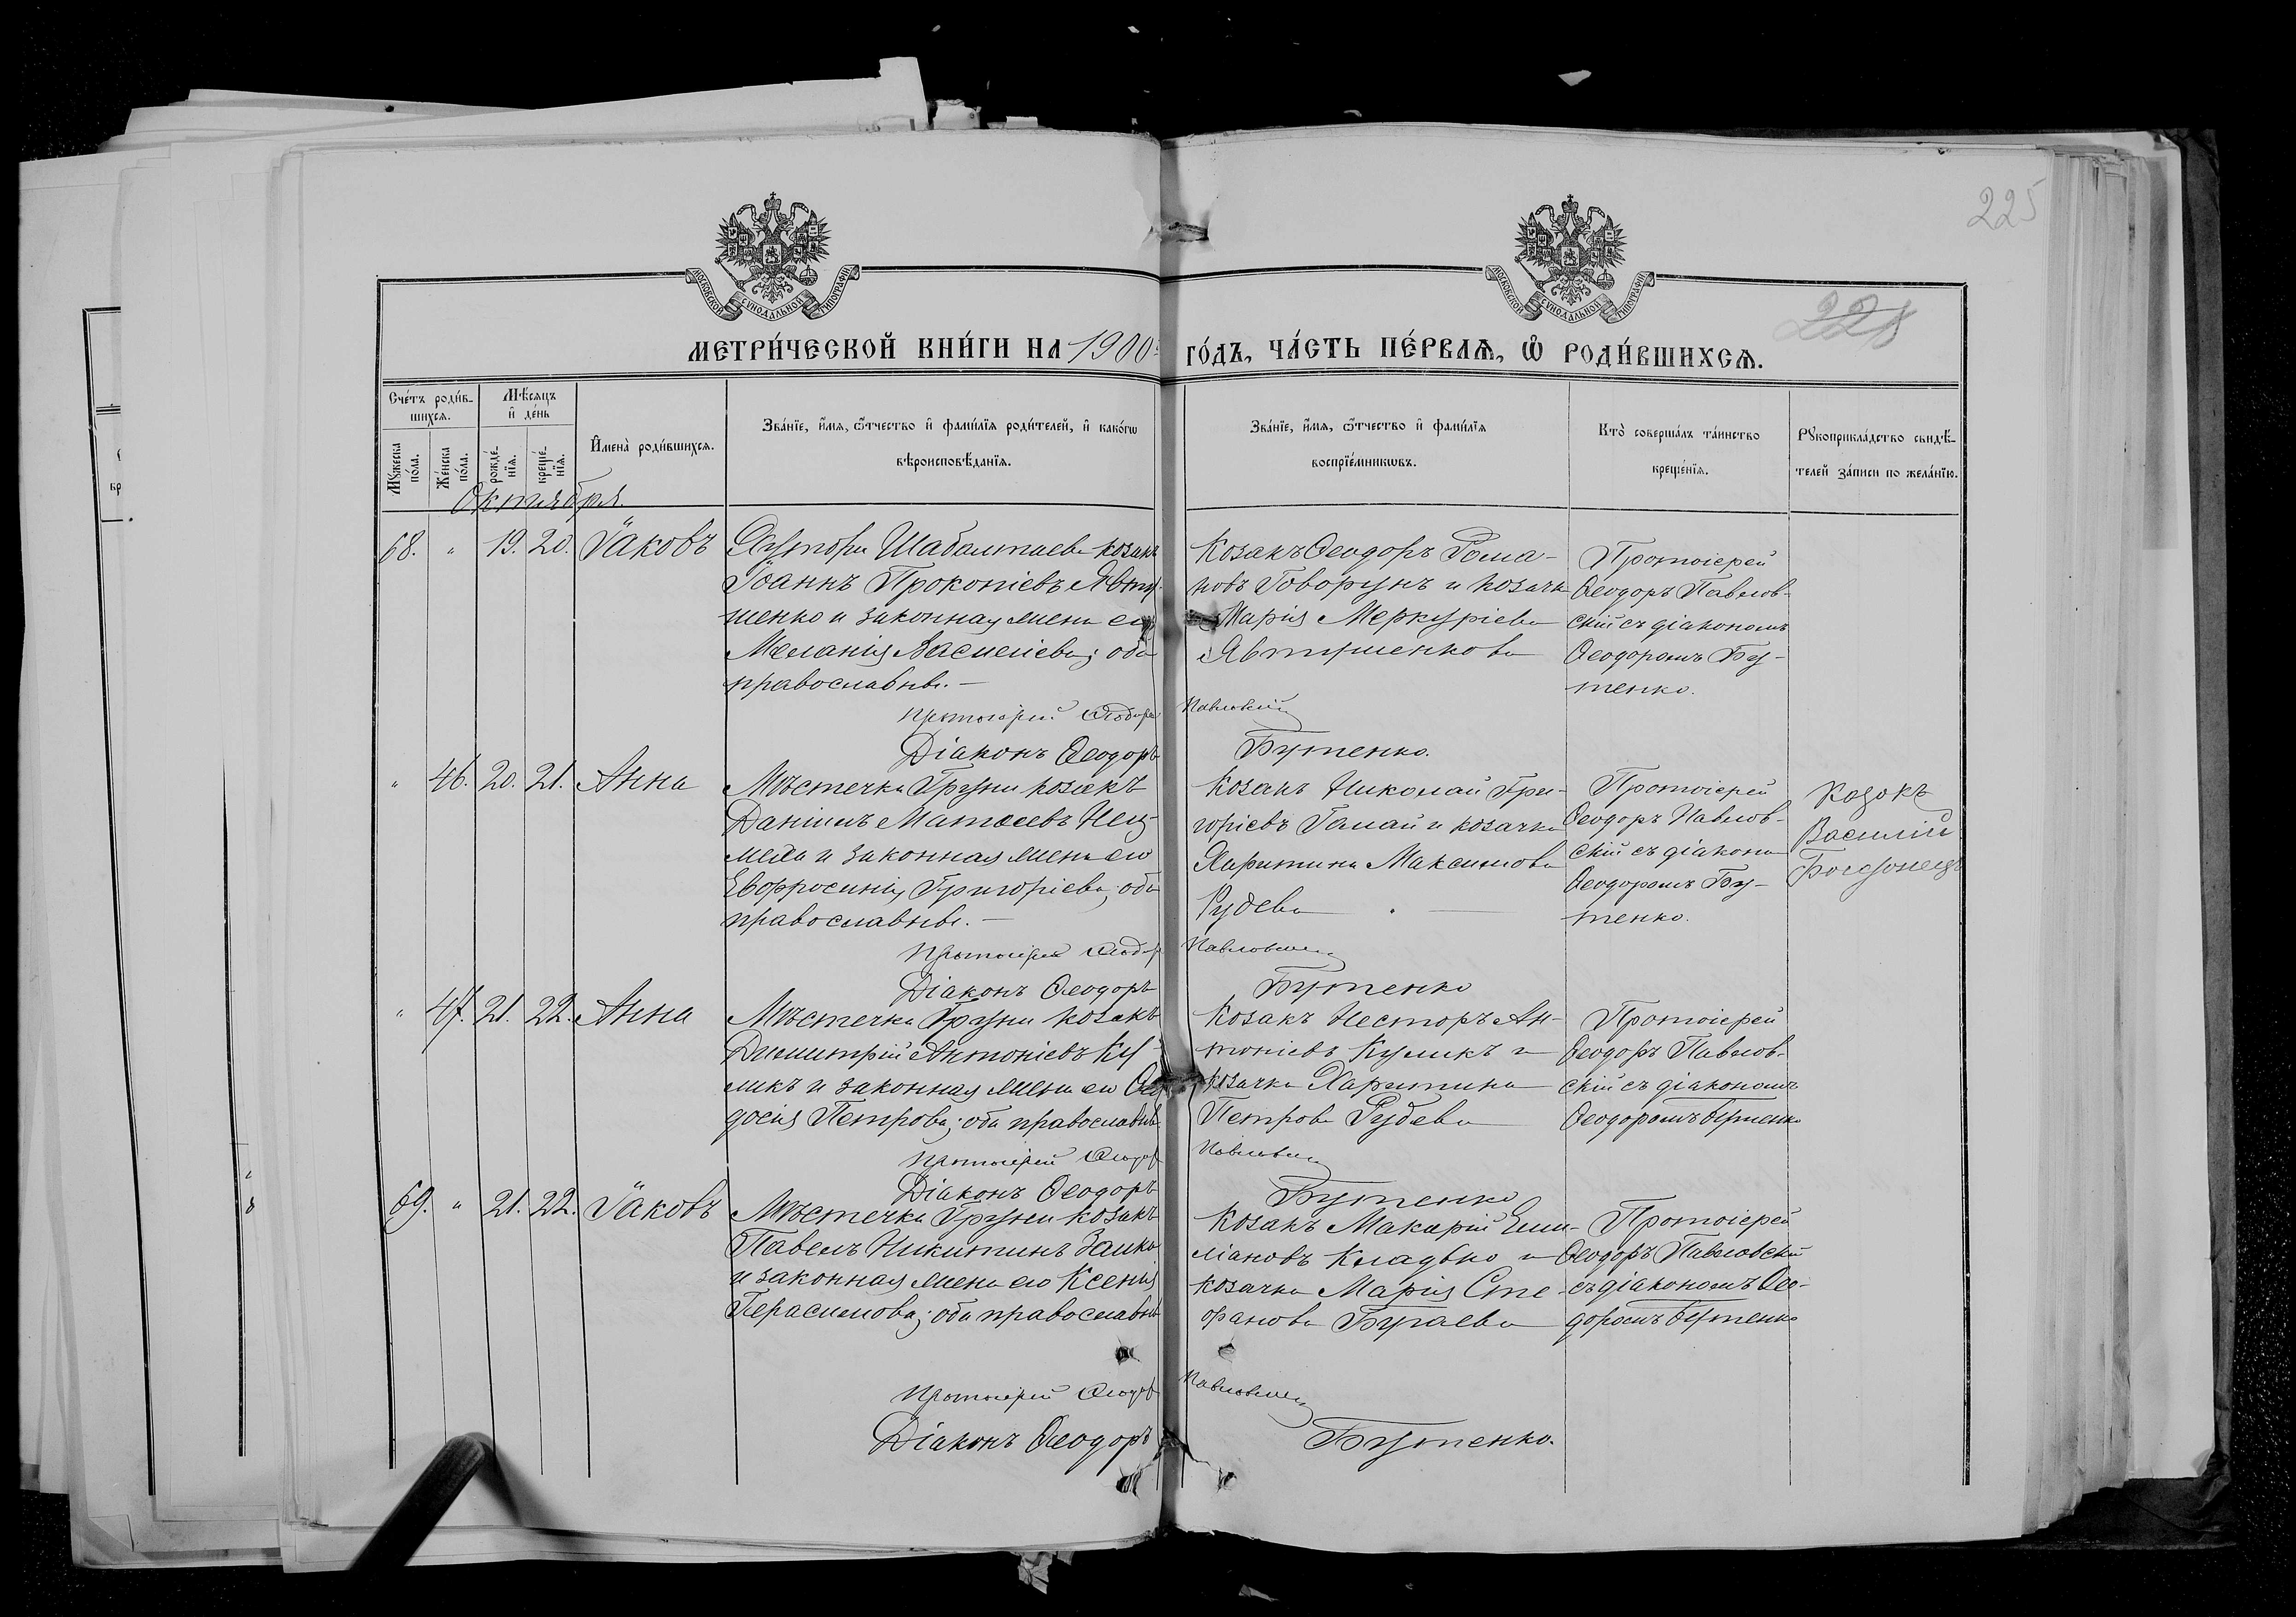 225
МОСКОВСКОЙ СѴНОДАЛЬНОЙ ТИПОГРАФІИ
МОСКОВСКОЙ СѴНОДАЛЬНОЙ ТИПОГРАФІИ
МЕТРИ́ЧЕСКОЙ КНИ́ГИ НА 1900
ГО́ДЪ, ЧА́СТЬ ПЕ́РВАѦ, Ѽ РОДИ́ВШИХСѦ.
Сче́тъ роди́в-
шихсѧ.
Мꙋ́жеска по́ла.
Же́нска по́ла.
Мѣ́сѧцъ
и҆ де́нь
рожде́-нїѧ.
креще́-нїѧ.
И҆мена̀ роди́вшихсѧ.
Зва́нїе, и҆́мѧ, ѻ҆́тчество и҆ фами́лїѧ роди́телей, и҆ како́гѡ
вѣроисповѣ́данїѧ.
Зва́нїе, и҆́мѧ, ѻ҆́тчество и҆ фами́лїѧ
воспрїе́мникѡвъ.
Кто̀ соверша́лъ та́инство
креще́нїѧ.
Рꙋкоприкла́дство свидѣ́-
телей за́писи по жела́нїю.
Октября
68. " 19. 20. Іаковъ
Хутора Шабалтаева козакъ
Іоаннъ Прокопіевъ Явту-
шенко и законная жена его
Меланія Василіева; оба
православные. —
Козакъ Ѳеодоръ Рома-
новъ Говорунъ и козачка
Марія Меркуріева
Явтушенкова
Протоіерей
Ѳеодоръ Павлов-
скій съ діакономъ
Ѳеодоромъ Бу-
тенко.
Протоіерей Ѳеодоръ Павловскій
Діаконъ Ѳеодоръ Бутенко.
" 46. 20. 21. Анна
Мѣстечка Груни козакъ
Даніилъ Матѳеевъ
и законная жена его
Евфросинія Григоріева; оба
православные. —
Козакъ Николай Гри-
горіевъ Гамай и козачка
Харитина Максимова
Рудева
Протоіерей
Ѳеодоръ Павлов-
скій съ діакономъ
Ѳеодоромъ Бу-
тенко.
Козокъ
Василій
Протоіерей Ѳеодоръ Павловскій
Діаконъ Ѳеодоръ Бутенко
" 47. 21. 22. Анна
Мѣстечка Груни козакъ
Димитрій Антоніевъ Ку-
ликъ и законная жена его Ѳео-
досія Петрова; оба православные
Козакъ Несторъ Ан-
тоніевъ Куликъ и
козачка Харитина
Петрова Рудева
Протоіерей
Ѳеодоръ Павлов-
скій съ діакономъ
Ѳеодоромъ Бутенко
Протоіерей Ѳеодоръ Павловскій
Діаконъ Ѳеодоръ Бутенко
69. " 21. 22. Іаковъ
Мѣстечка Груни козакъ
Павелъ Никитинъ Заико
и законная жена его Ксенія
Герасимова; оба православные
Козакъ Макарій Еми-
ліановъ Кладько и
козачка Марія Сте-
фанова Бугаева
Протоіерей
Ѳеодоръ Павловскій
съ діакономъ Ѳео-
доромъ Бутенко
Протоіерей Ѳеодоръ Павловскій
Діаконъ Ѳеодоръ Бутенко.